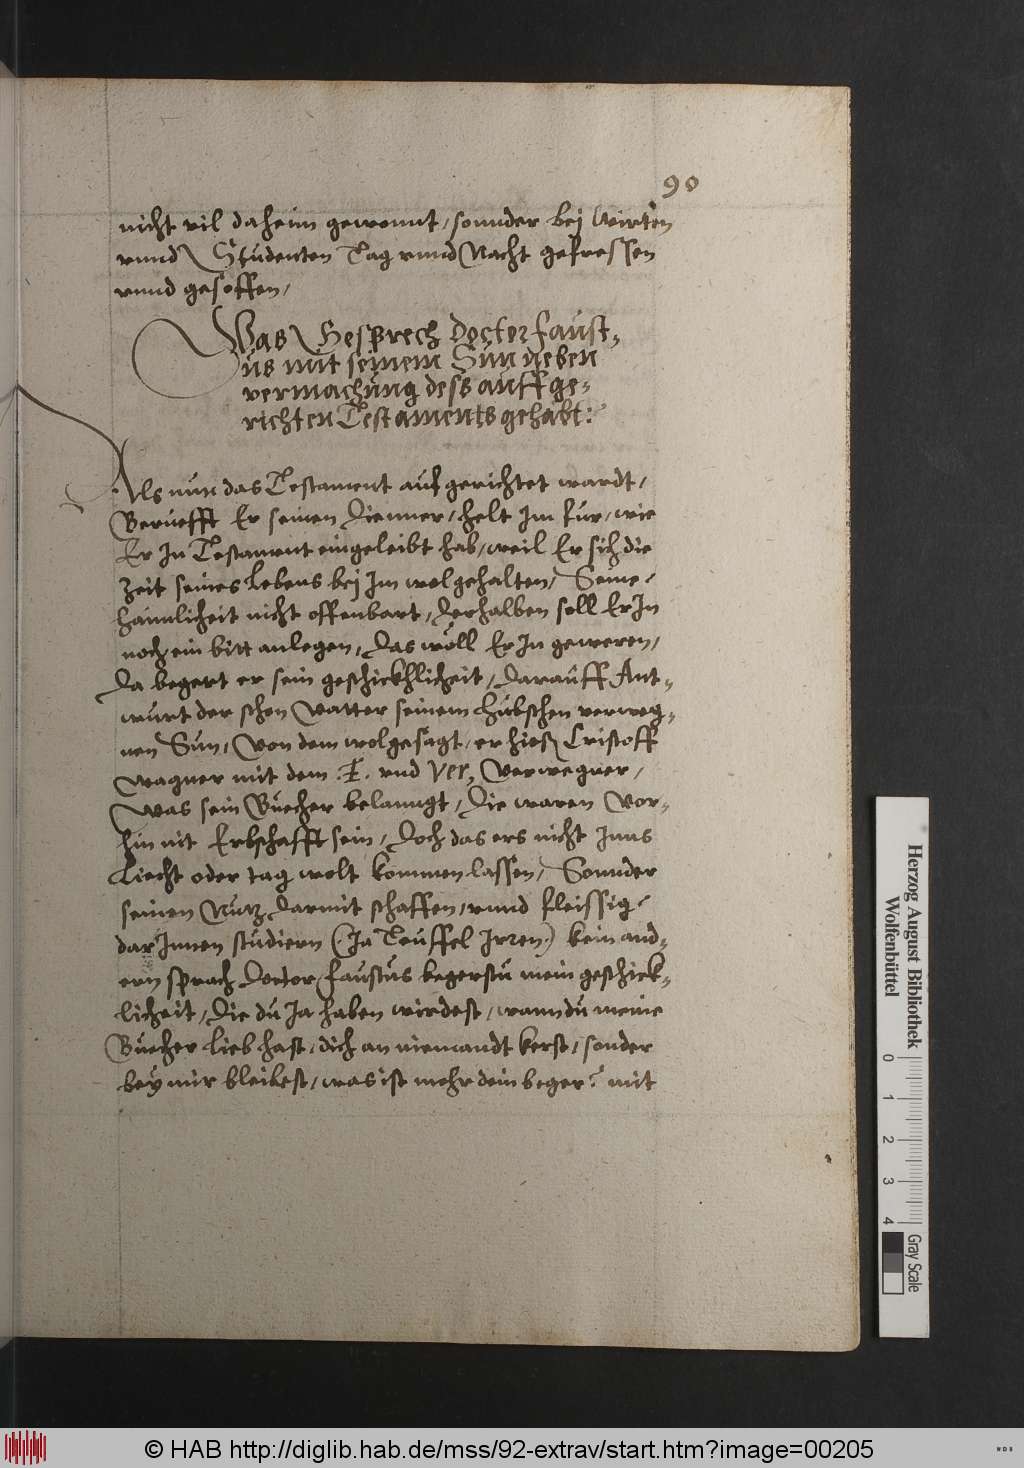 90
nicht vil daheim gewonnt, sonnder bej Wirten
vnnd Studenten Tag vnnd Nacht gefressen
vnnd gesoffen,
Was Gesprech Docter Faust-
us mit seinem Sun neben
vermachung dess auffge-
richten Testaments gehabt:
Als nun das Testament aufgerichtet wardt,
Beruefft Er seinen Dienner, helt Im für, wie
Er In Testament eingeleibt hab, weil Er sich die
zeit seines Lebens bej Im wolgehalten, Seine
haimlicheit nicht offenbart, Derhalben soll Er In
noch ein bitt anlegen, das wöll Er In geweren,
Da begert er sein geschickhlicheit, darauff Ant-
wurt der schon Vatter seinem hübschen verweg-
nen Sun, Von dem wolgesagt, er hiess Cristoff
Wagner mit dem .E. vnd Ver, Verwegner,
Was sein Buecher belanngt, die waren Vor-
hin mit Erbschafft sein, doch das ers nicht Inns
Liecht oder tag wolt kommen lassen, Sonnder
seinen Nutz darmit schaffen, vnnd fleissig
dar Innen studiern (In Teuffel Irren) kein and-
ern sprach Doctor Faustus begerstu mein geschick-
licheit, Die du Ja haben wirdest, wann du meine
Buecher lieb hast, dich an niemandt kerst, sonder
bey mir bleibest, was ist mehr dein beger? mit
Herzog August Bibliothek
Wolfenbüttel
0 1 2 3 4
Gray Scale
© HAB http://diglib.hab.de/mss/92-extrav/start.htm?image=00205
WDB